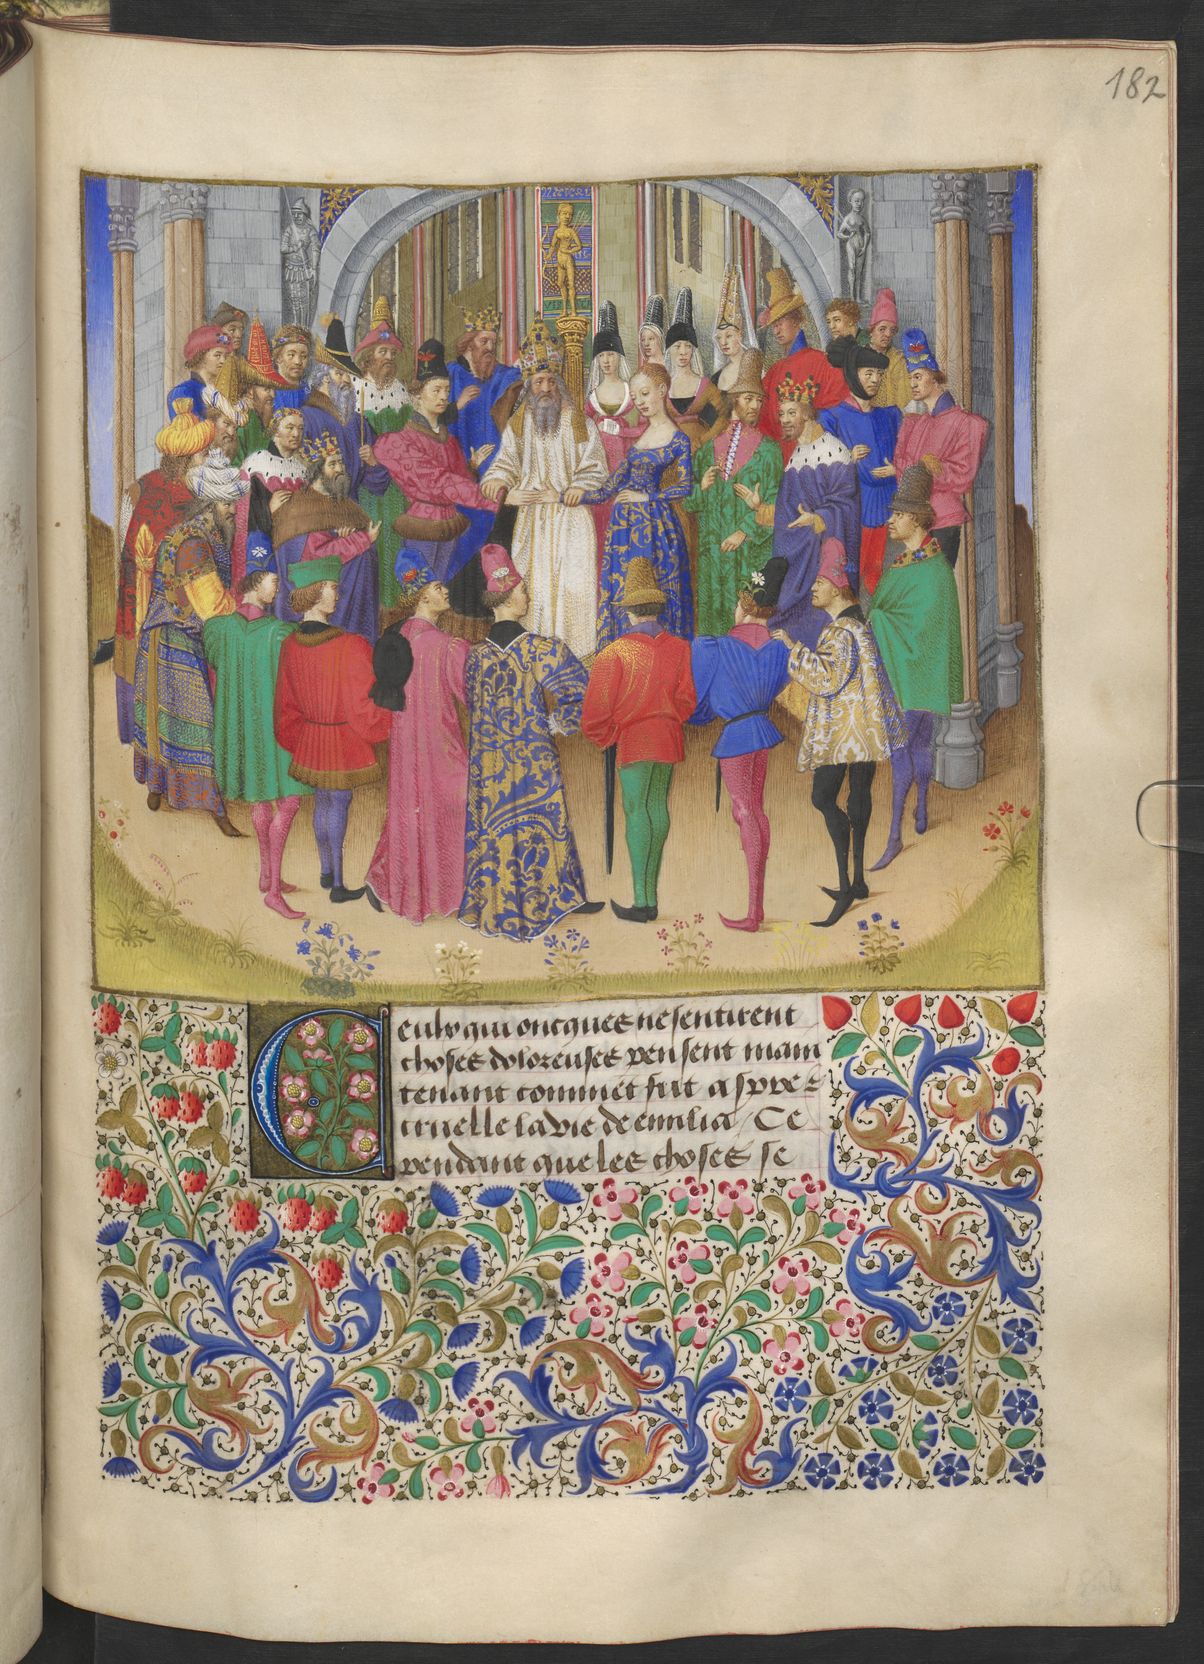 182
Ceulx qui oncques ne sentirent
choses doloreuses pensent main
tenant comment fut aspre et
cruelle la vie de emilia / Ce
pendant que les choses se